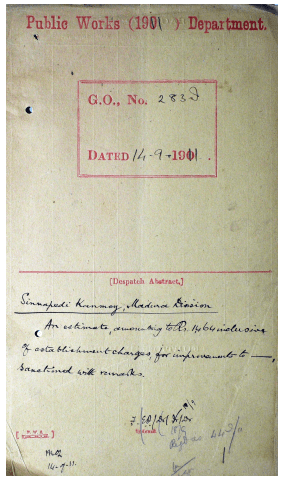 Public Works (1911) Department.
G.O., No. 283 I
DATED 14-9-1911.
[Despatch Abstract,]
Sinnapedi Kanmoy, Madura Division
An estimate, amounting to Rs. 1464 inclusive
of establishment charges, for improvements to —,
sanctioned with remarks.
14-9-11.